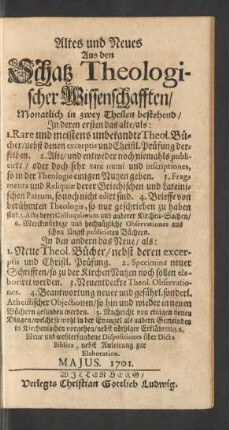 Altes und Neues
Aus den
Schatz Theologi-
scher Wissenschafften/
Monatlich in zwey Theilen bestehend/
In deren ersten das alte/als:
1. Rare und meistens unbekandte Theol. Bü-
cher/nebst denen excerptis und Christl. Prüfung der-
selben. 2. Alte/ und entweder noch niemahls publi-
cirte/ oder doch sehr rare numi und inscriptiones,
so in der Theologie einigen Nutzen geben. 3. Fragm-
enta und Reliquiæ derer Griechischen und Lateini-
schen Patrum, so noch nicht edirt sind. 4. Briefe von
berühmten Theologis, so nur geschrieben zu haben
sind 5. Acta derer Colloquiorum und anderer Kirchen-Sachen/
6. Merckwürdige und hochnützliche Observationes aus
schon längst publicirten Büchern.
In den andern das Neue/ als:
1. Neue Theol. Bücher/ nebst deren excer-
ptis und Christl. Prüfung. 2. Specimina neuer
Schrifften/so zu der Kirchen Nutzen noch sollen elab-
oriret werden. 3. Neuentdeckte Theol. Observatio-
nes. 4. Beantwortung neuer und gefährl. sonderl.
Atheistischer Objectionen/ so hin und wieder in neuen
Büchern gefunden werden. 5. Nachricht von einigen neuen
Dingen/ welche so wohl in der Evangel. als andern Gemeinden
in Kirchensachen vorgehen/ nebst nöthiger Erklährung. 6.
Neue und wohlersundene Dispositiones über Dicta
Biblica, nebst Anleitung zur
Elaboration.
MAJUS. 1701.
WITTENBERG/
Verlegts Christian Gottlieb Ludwig.